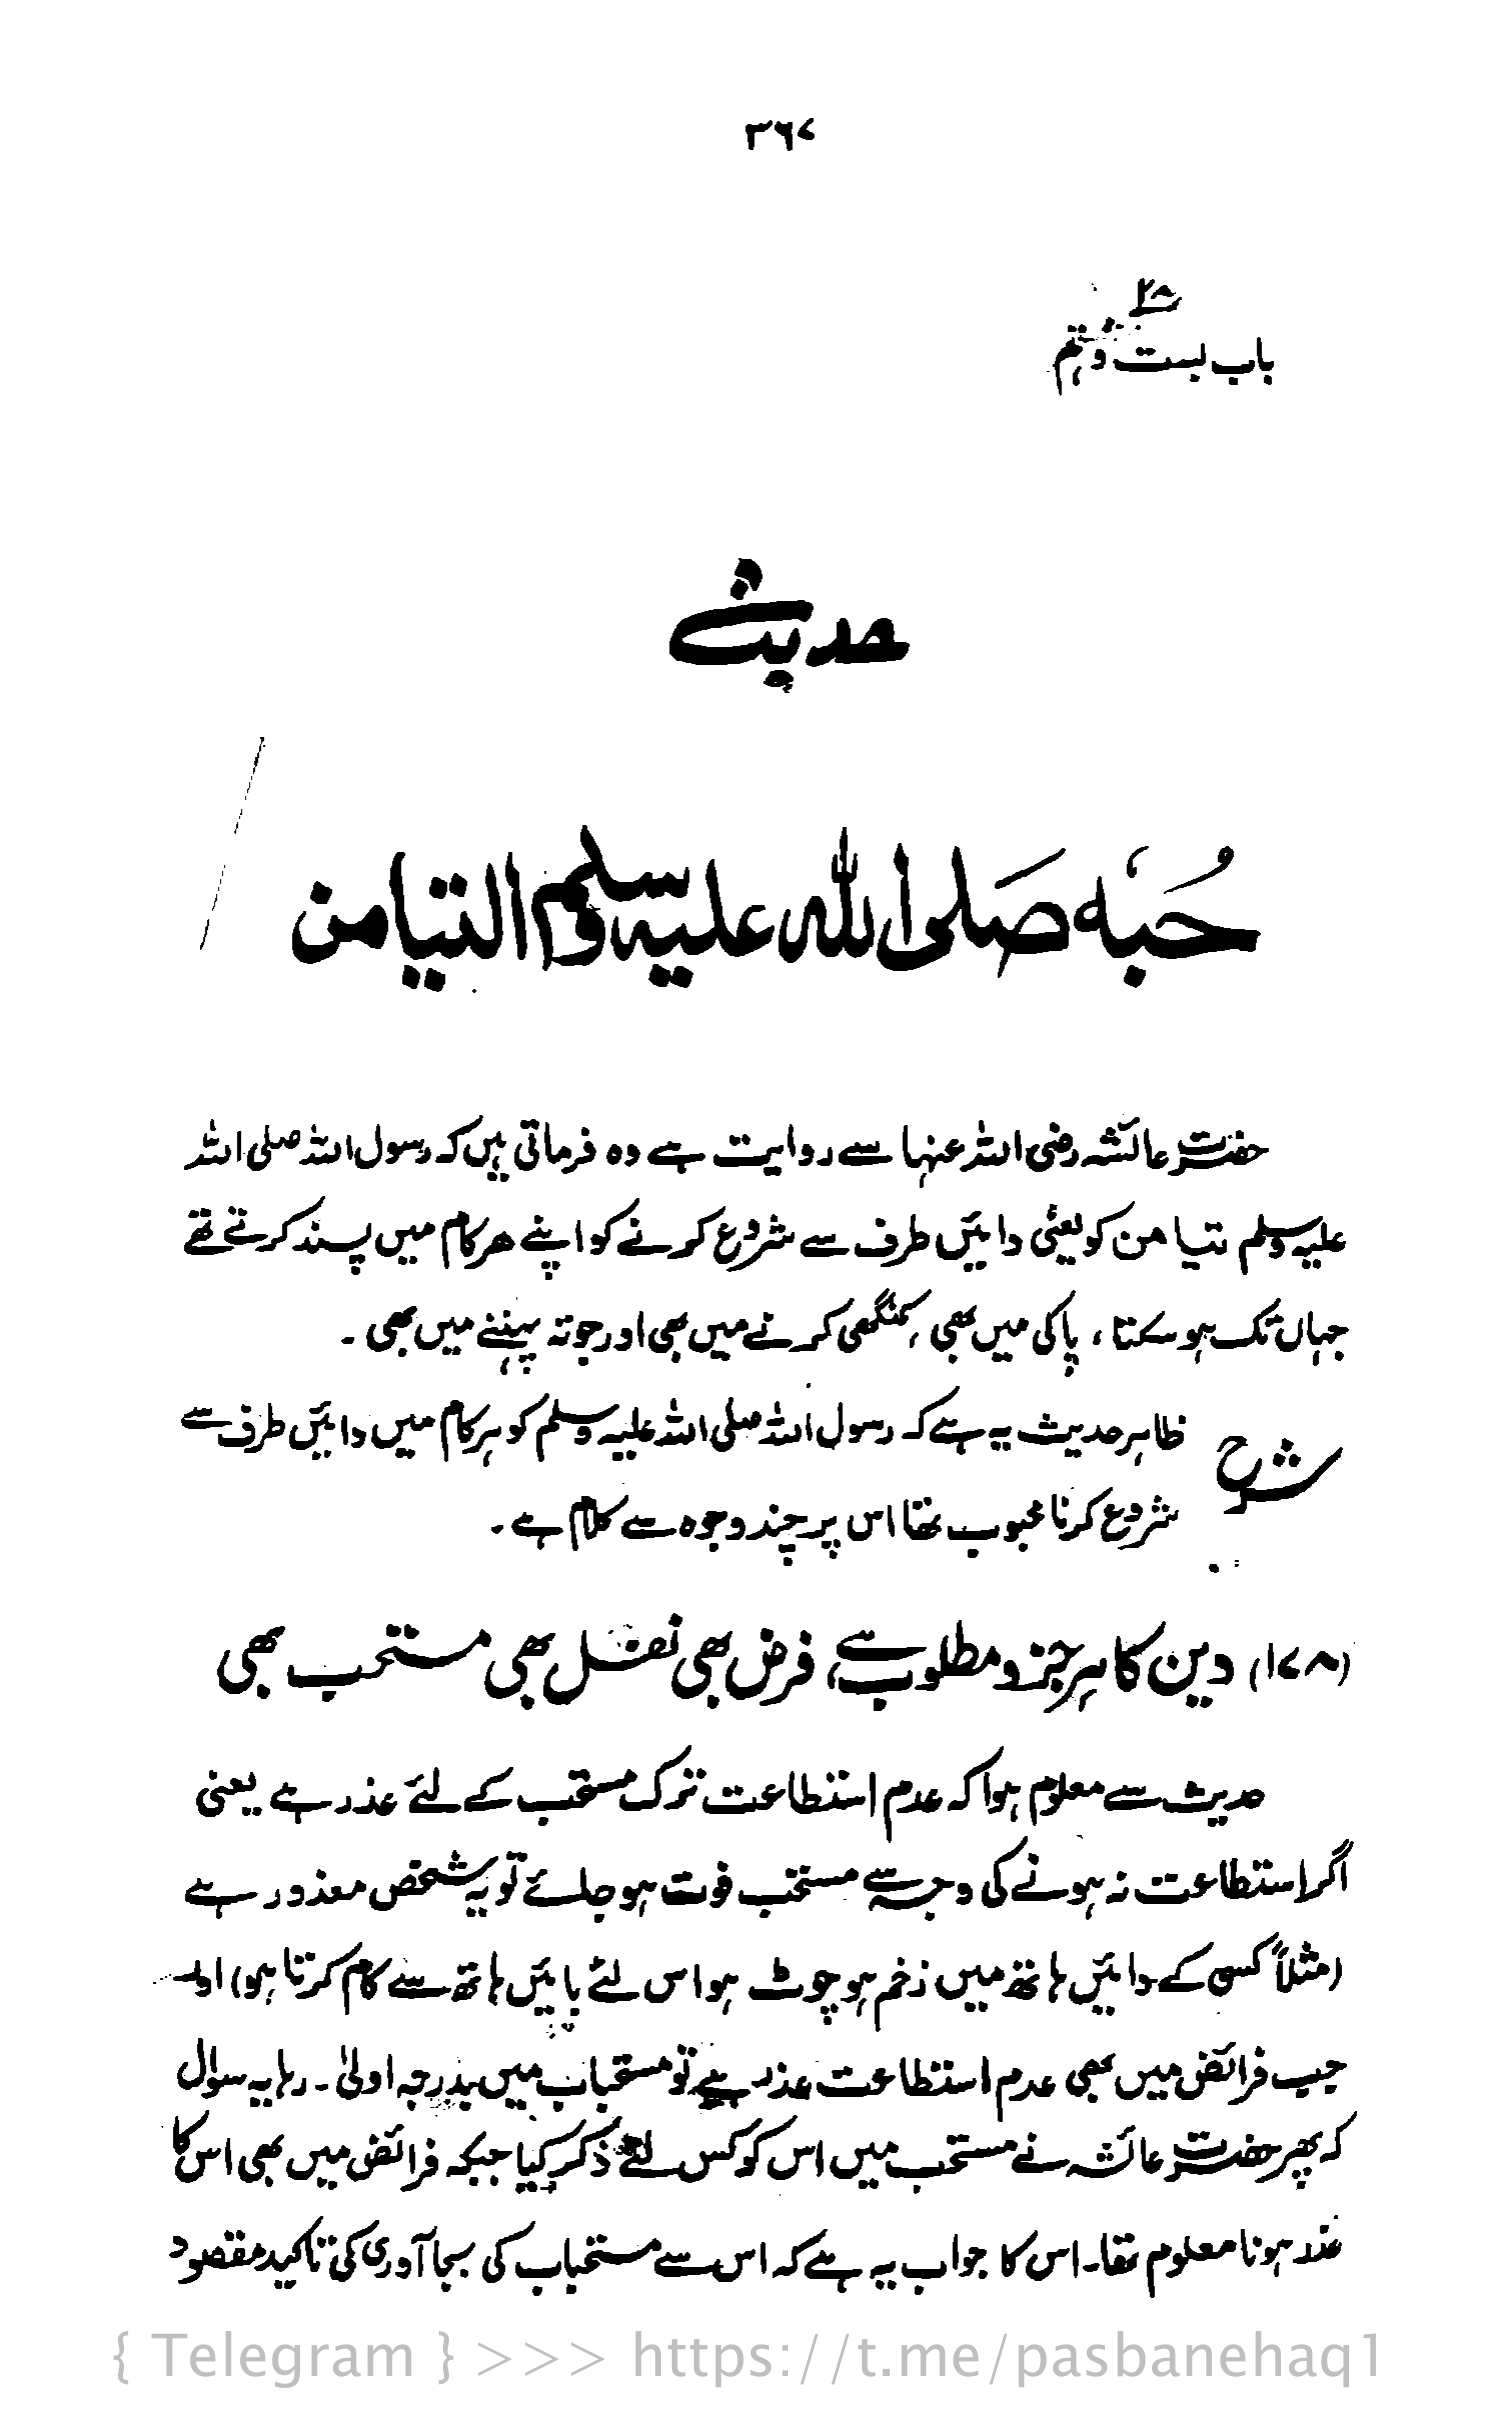 ۳۶۷
۲۸
باب بست و ہشتم
حدیث
حُبّہ صلی اللہ علیہ وسلم التیامن
حضرت عائشہ رضی اللہ عنہا سے روایت ہے وہ فرماتی ہیں کہ رسول اللہ صلی اللہ
علیہ وسلم تیامن کو یعنی دائیں طرف سے شروع کرنے کو اپنے ھر کام میں پسند کرتے تھے
جہاں تک ہو سکتا، پاکی میں بھی، کنگھی کرنے میں بھی اور جوتہ پہننے میں بھی۔
شرح ظاہر حدیث یہ ہے کہ رسول اللہ صلی اللہ علیہ وسلم کو ہر کام میں دائیں طرف سے
شروع کرنا محبوب تھا اس پر چند وجوہ سے کلام ہے۔
(۱۷۸) دین کا ہر جزو مطلوب ہے، فرض بھی نفل بھی مستحب بھی
حدیث سے معلوم ہوا کہ عدم استطاعت ترک مستحب کے لئے عذر ہے یعنی
اگر استطاعت نہ ہونے کی وجہ سے مستحب فوت ہو جائے تو یہ شخص معذور ہے
(مثلاً کسی کے دائیں ہاتھ میں زخم ہو چوٹ ہو اس لئے بائیں ہاتھ سے کام کرتا ہو) اور
جب فرائض میں بھی عدم استطاعت عذر ہے تو مستحبات میں بدرجہ اولیٰ۔ رہا یہ سوال
کہ پھر حضرت عائشہ نے مستحب میں اس کو کس لئے ذکر کیا جبکہ فرائض میں بھی اس کا
عذر ہونا معلوم تھا۔ اس کا جواب یہ ہے کہ اس سے مستحبات کی بجا آوری کی تاکید مقصود
{ Telegram } >>> https://t.me/pasbanehaq1